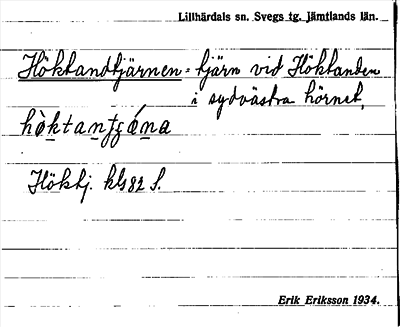 Lillhärdals sn. Svegs tg. Jämtlands län.
Höktandtjärnen = tjärn vid Höktanden
i sydvästra hörnet.
Höktj. kls 82 S.
Erik Eriksson 1934.